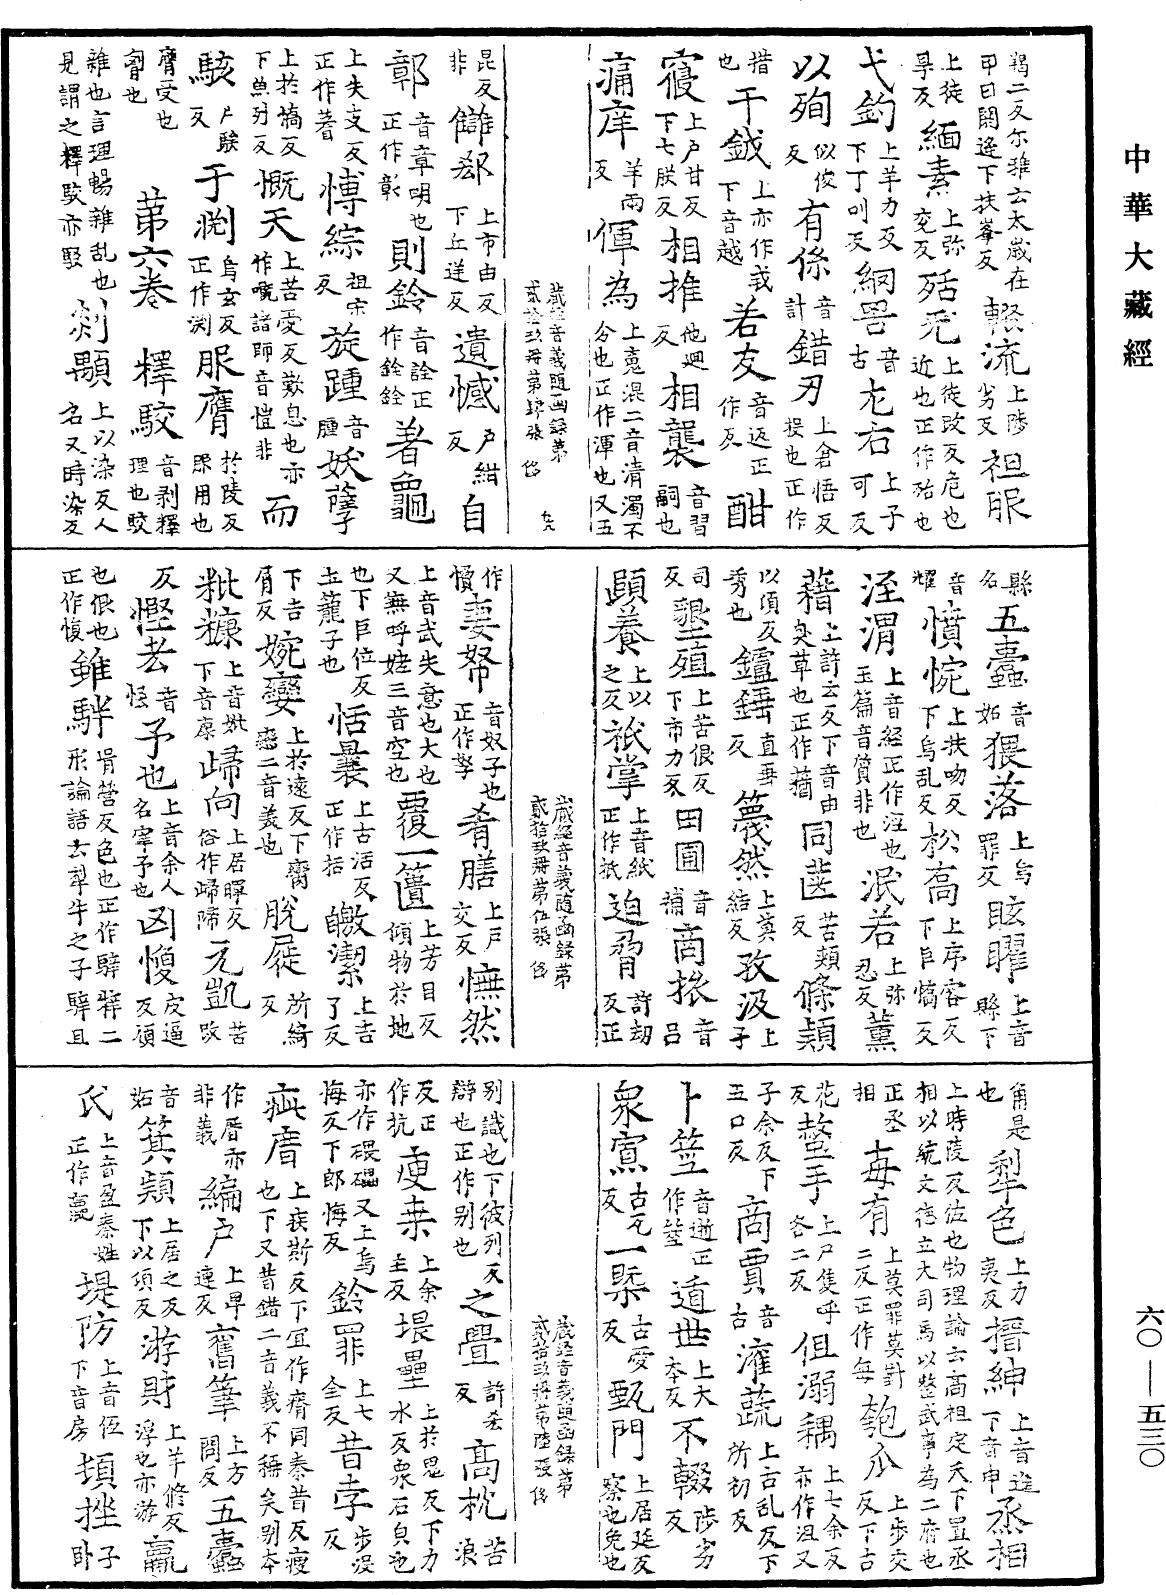 中華大藏經
羯二反尔雅云太歲在甲曰閼逢下扶峯反 輟流上陟劣反 袒服
上徒旱反 緬素上弥兖反 殆死上徒改反危也近也正作殆也
弋釣上羊力反下丁叫反 網罟音古 左右上子可反
以殉似俊反 有係音計 錯刃上倉悟反投也正作
措也 干鉞上亦作戉下音越 若友音返正作反 酣
寢上户甘反下七朕反 相推他迴反 相襲音習嗣也
痛庠羊兩反 俥為上㲋混二音清濁不分也正作渾也又五
藏經音義隨函錄第貳拾玖冊第肆張 侈
昆反非 讎郄上市由反下丘逆反 遺憾户紺反 自
鄣音章明也正作彰 則鈴音詮正作銓銓 著龜
上失支反正作蓍 愽綜祖宋反 旋踵音腫 妖孽
上於憍反下魚列反 慨天上苦愛反歎息也亦作嘅諸師音愷非 而
駭户駭反 于渕烏玄反正作渊 服膺於陵反眾用也
膺受也䏨也 第六卷 釋駮音剥釋理也駮
雜也言理暢雜乱也見謂之釋駮亦駁 剡顒上以染反人名又時染反
縣名 五蠹音妬 猥落上烏罪反 眩曜上音縣下
音耀 憤惋上扶吻反下烏乱反 松高上序容反下巨憍反
淫渭上音經正作涇也玉篇音質非也 泯若上弥忍反 薰
蕕上許云反下音由臭草也正作蕕 同匧苦頰反 條穎
以頃反秀也 鑪錘直垂反 篾然上莫結反 孜汲上子
司反 墾殖上苦佷反下市力反 田圃音補 商搋音吕
頤養上以之反 祇掌上音紙正作抵 迫脅許劫反正
藏經音義隨函錄第貳拾玖冊第伍張 侈
作愶 妻帑音奴子也正作孥 肴膳上户交反 憮然
上音武失意也大也又無呼娃三音空也 覆一簣上芳目反傾物於地
也下巨位反土籠子也 恬曩上古活反正作括 皦潔上吉了反
下吉屑反 婉孌上於遠反下臠戀二音美也 脫屣所綺反
粃糠上音妣下音康 歸向上居暉反俗作㱕歸 元凱苦改
反 慳怯音恡 予也上音余人名宰予也 凶愎皮逼反頑
也佷也正作愎 雖騂胥營反色也正作騂牸二形論語云犁牛之子騂且
角是也 犁色上力夷反 搢紳上音進下音申 丞相
上時陵反佐也物理論云高祖定天下置丞相以統文德立大司馬以整武事為二府也
正丞相 每有上莫罪莫對二反正作每 匏瓜上步交反下古
花反 螫手上户隻乎各二反 伹溺耦上七余反亦作沮又
子余反下五口反 商賈音古 灌蔬上古乱反下所初反
卜筮音逝正作筮 遁世上大本反 不輟陟劣反
衆寡古瓦反 一槩古愛反 甄門上居延反察也免也
藏經音義隨函錄第貳拾玖冊第陸張 侈
別識也下彼列反辯也正作别也 之疊許𠫤反 高枕苦浪
反正作抗 庾桒上余主反 垠壘上於思反下力水反衆石皃也
亦作碨礧又上烏悔反下郎悔反 鈴罪上七全反 昔孛步没反
疵厝上疾斯反下宜作瘠同秦昔反瘦也下又昔錯二音義不稱矣别本
作厝亦非義 編户上早連反 奮筆上方問反 五蠹
音妬 箕穎上居之反下以頃反 游財上羊修反浮也亦游 嬴
氏上音盈秦姓正作嬴 堤防上音低下音房 摧挫子卧
六〇—五三〇